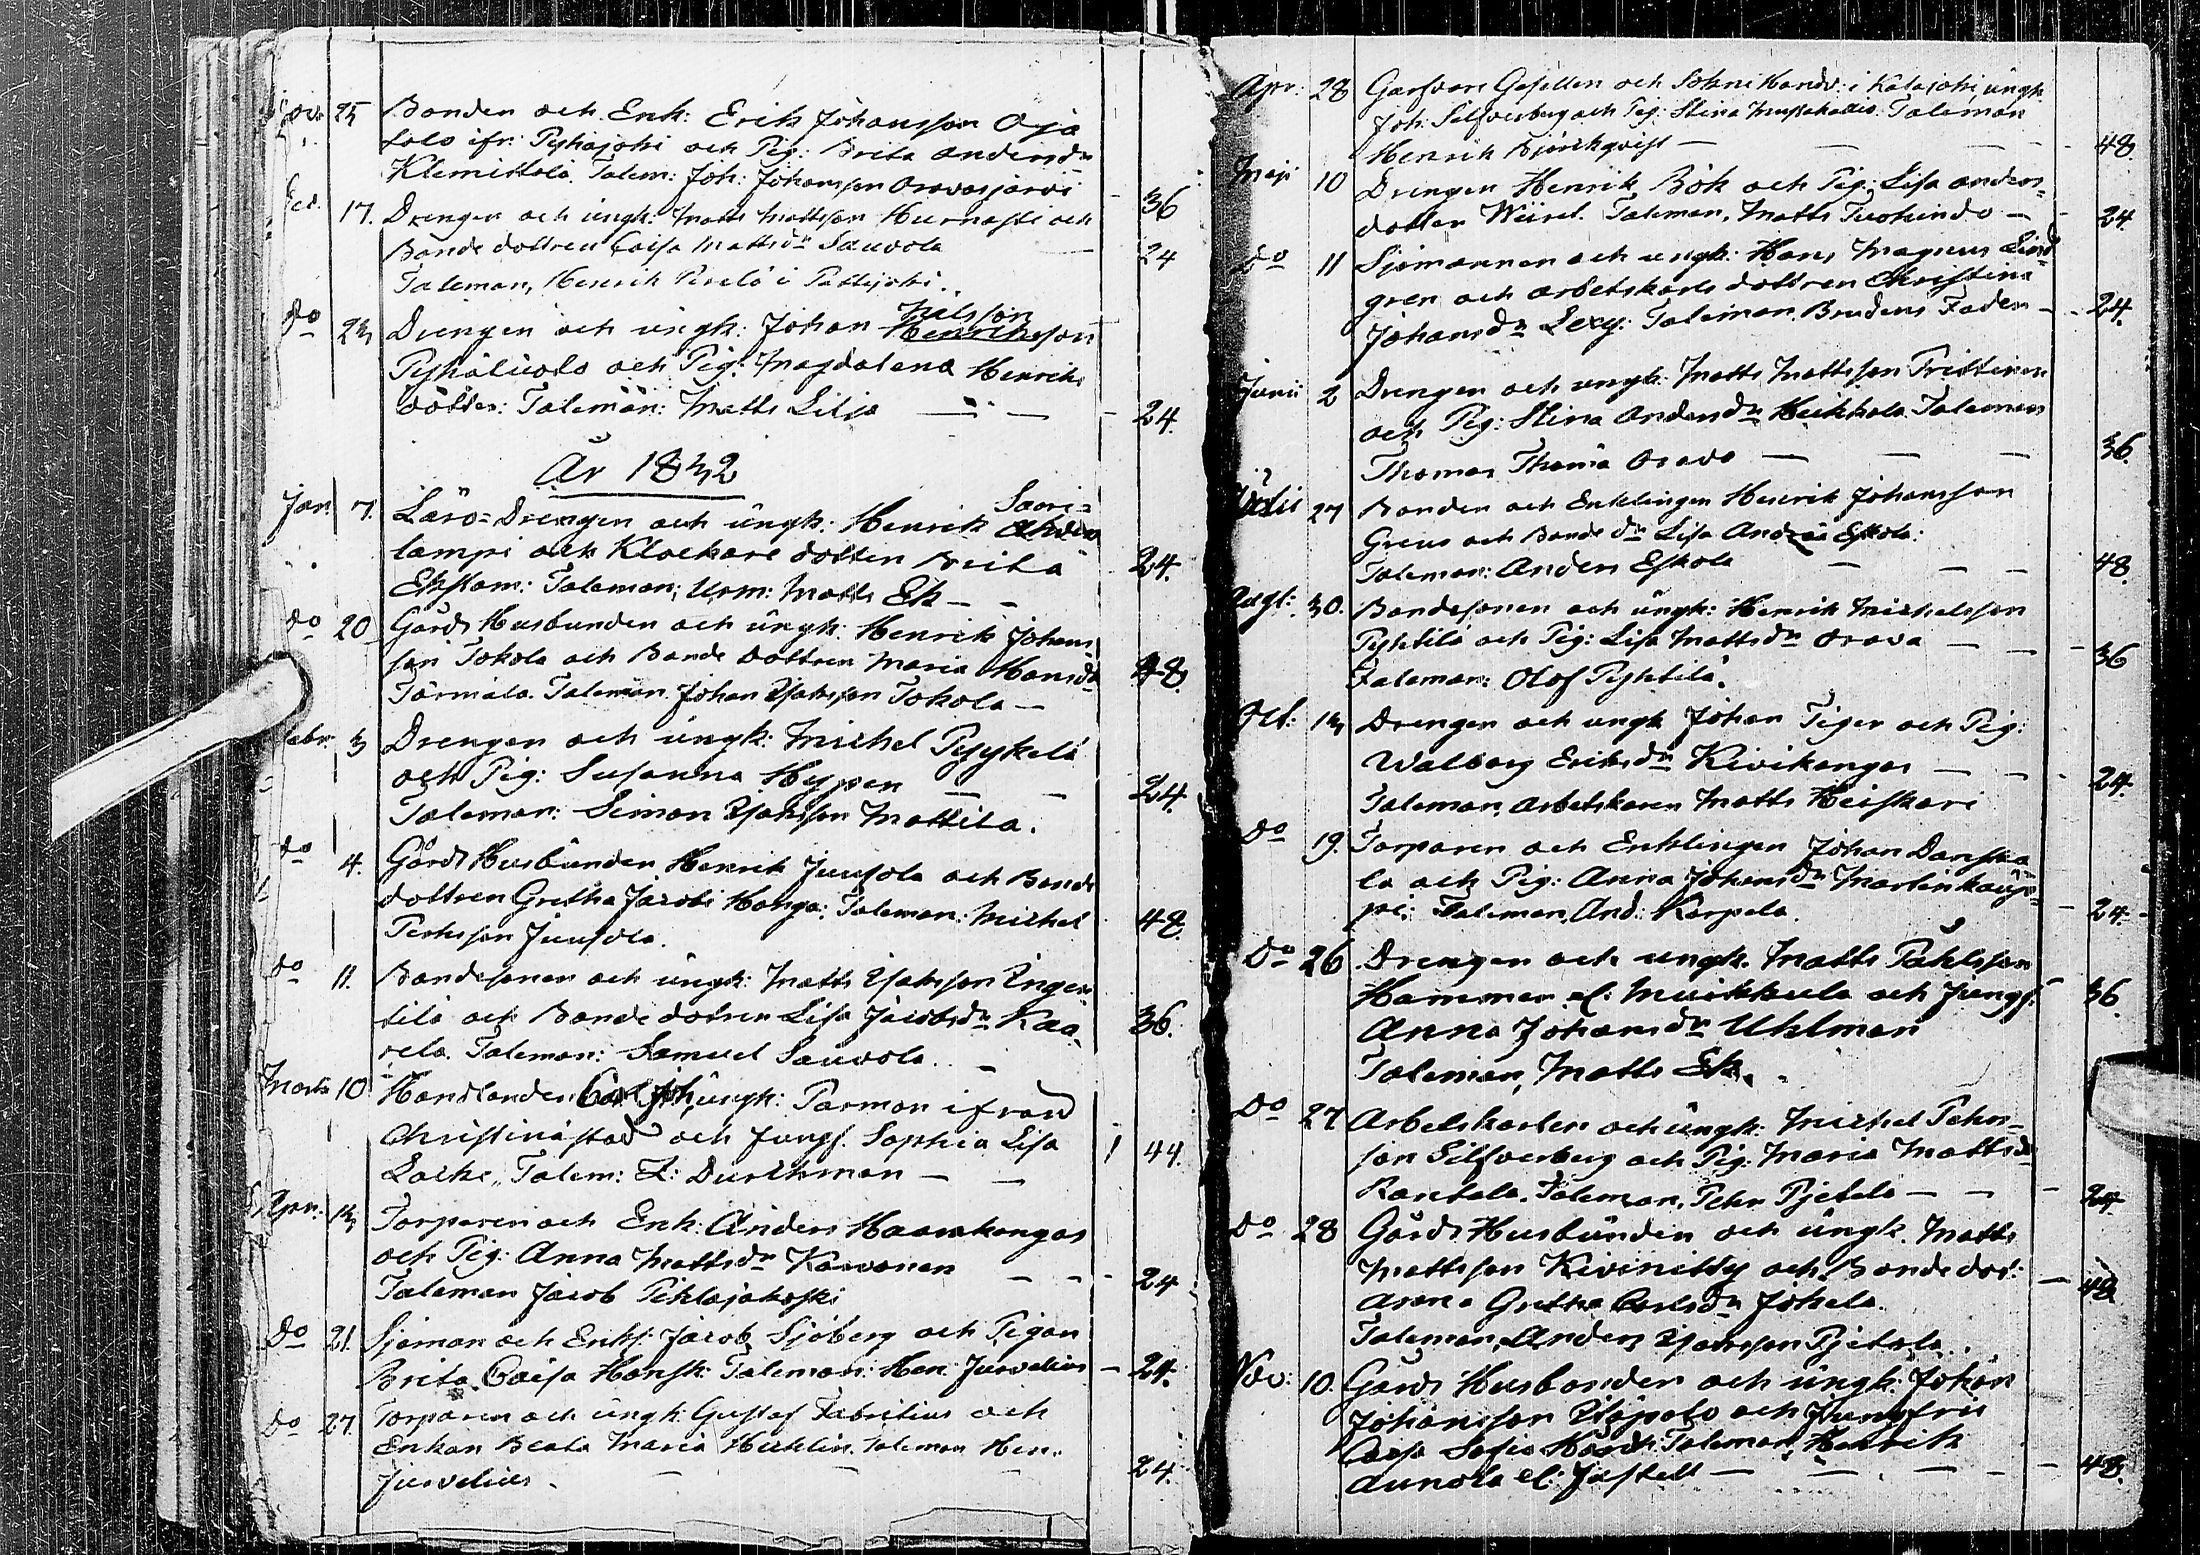 Nov. 25 Bonden och Enk: Erik Johansson Oja
lolo ifr: Pyhäjoki och Pig: Brita Andersdr
Klemittola. Talem: Joh: Johansson Oravasjärvi - 36
Dec. 17. Drengen och ungk: Matts Mattsson Hurnasti och
Bonde dottren Caisa Mattsdr Sauvola - 24
Taleman, Henrik Perälä i Pattijoki.
Do 23 Drengen och ungk: Johan Henriksson Nilsson
och Pig: Magdalena Henriks
dotter: Taleman: Matts Lilja - 24.
År 1832
Jan. 7. Läro-Drengen och ungk: Henrik Saari-
lampi och Klockare dotten Brita - 24.
Ekstam: Taleman, Urm: Matts Ek -
Do 20 Gårds Husbunden och ungk: Henrik Johans-
son Tokola och Bonde dottren Maria Hansdr 48.
Törmälä. Taleman Johan Isaksson Tokola -
Febr. 3 Drengen och ungk: Michel Pyykelä
och Pig: Susanna Hyppen - 24.
Taleman: Simon Isaksson Mattila.
Do 4. Gårds Husbunden Henrik Juusola och Bonde
dottren Gretha Jacobs Hanga: Taleman: Michel 48.
Pehrsson Juusola.
Do 11. Bondesonen och ungk: Matts Isaksson Inger-
tilä och Bonde dotren Lisa Jacobsdr Kaa- 36.
rela. Taleman: Samuel Sauvola.
Marts 10 Handlanden Carl Joh, ungk: Parman ifrån
Christinæstad och Jungf. Sophia Lisa 1 44.
Lacke, Talem: Z: Durchman -
Apr: 13 Torparen och Enk: Anders Haarakangas
och Pig: Anna Mattsdr Karvonen - 24
Taleman Jacob Pihlajakoski
Do 21. Sjöman och Enkl: Jacob Sjöberg och Pigan
Brita Caisa Hansk: Taleman: Hen: Jurvelius - 24.
Do 27. Torparen och ungk. Gustaf Fabritius och
Enkan Beata Maria Heiklin. Taleman Hen.
Jurvelius. - 24.
Apr: 28 Garfvare Gesellen och Sokne Handv: i Kalajoki ungk.
Joh: Silfverberg och Pig: Stina Taleman
Henrik Björkqvist - 48.
Maji 10 Drengen Henrik Bök och Pig: Lisa Anders-
dotter Wiiret. Taleman, Matts Tuohindo - 24
Do 11 Sjömannen och ungk: Hans Magnus Lind-
gren och arbetskarls dottren Christina
Johansdr Lexy: Taleman Brudens Fader - 24.
Junii 2 Drengen och ungk: Matts Mattsson Trittinen
och Pig: Stina Andersdr Heikkola. Taleman
Thomas Thomæ Orava - 36.
Julii 27 Bonden och Enklingen Henrik Johansson
Greus och Bonde dr Lisa Andreæ Eskola:
Taleman: Anders Eskola - 48.
Augt: 30. Bondesonen och ungk: Henrik Michelsson
Pyhtilä och Pig: Lisa Mattsdr Orava - 36
Taleman: Olof Pyhtilä.
Oct: 13 Drengen och ungk Johan Tiger och Pig:
Walborg Eriksdr Kivikangas - 24.
Taleman, Arbetskaren Matts Heiskari
Do 19. Torparen och Enklingen Johan Danska-
la och Pig: Anna Johansdr Martinkaup-
pi: Taleman, And: Karpela. - 24.
Do 26 Drengen och ungk. Matts Påhlsson
Hammar el: Muikkula och Jungf: 36.
Anna Johansdr Uhlman
Taleman, Matts Ek.
Do 27 Arbetskarlen och ungk: Michel Pehrs-
son Silfverberg och Pig: Maria Mattsdr
Rantala. Taleman, Pehr Pjetilä - 24
Do 28 Gårds Husbunden och ungk. Matts
Mattsson Kiviniitty och Bonde dot: - 48
Anna Gretha Carlsdr Jokela.
Taleman, Anders Isaksson Pjetilä.
Nov: 10. Gårds Husbonden och ungk: Johan
Johansson Ylöpolo och Jungfru
Caisa Sofia Taleman, Henrik
Aunola el: Justell - 48.